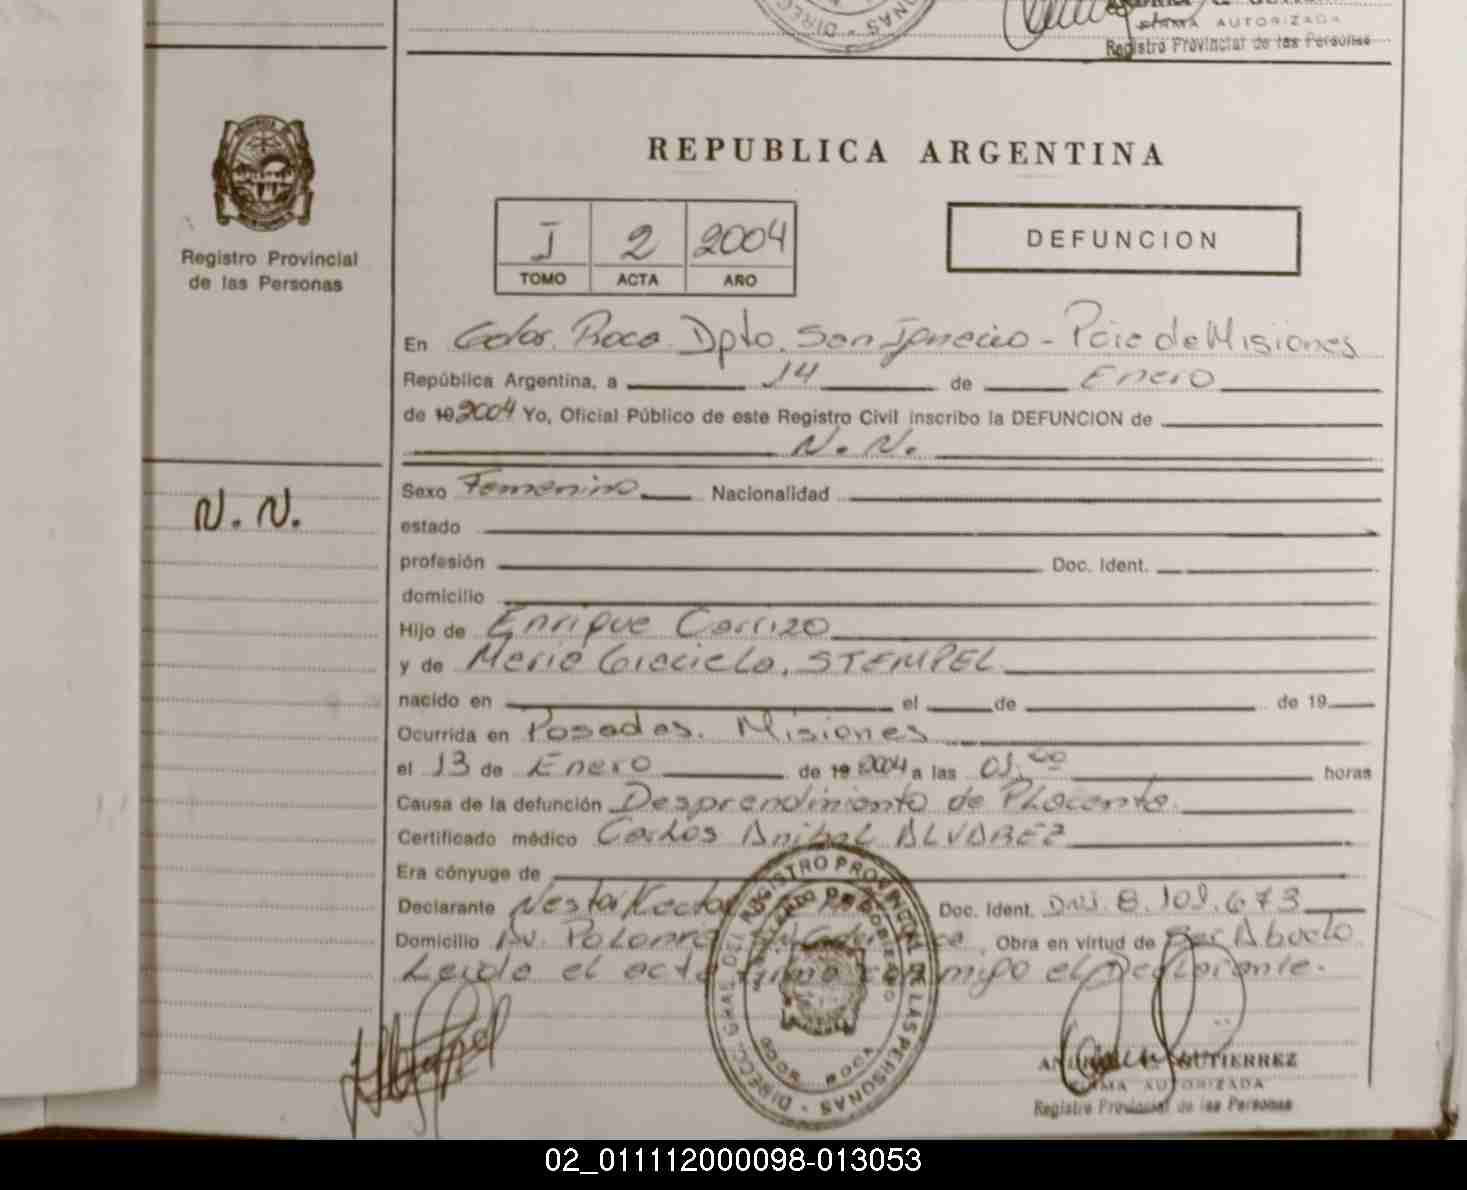 FIRMA AUTORIZADA
Registro Provincial de las Personas
Registro Provincial
de las Personas
REPUBLICA ARGENTINA
I 2 2004
TOMO ACTA AÑO
DEFUNCION
En Gdor. Roca. Dpto. San Ignacio - Pcia de Misiones
República Argentina, a 14 de Enero
de 19 2004 Yo, Oficial Público de este Registro Civil inscribo la DEFUNCION de
N. N.
N. N.
Sexo Femenino Nacionalidad
estado
profesión Doc. Ident.
domicilio
Hijo de Enrique Carrizo
y de Maria Graciela, STEMPEL
nacido en el de de 19
Ocurrida en Posadas. Misiones
el 13 de Enero de 19 2004 a las 01.00 horas
Causa de la defunción Desprendimiento de Placenta.
Certificado médico Carlos Anibal ALVAREZ
Era cónyuge de
Declarante Nestor Hector Doc. Ident. DNI. 8.101.673
Domicilio Av. Polonia Obra en virtud de Ser Abuelo
Leida el acta firma conmigo el Declarante.
DIRECC. GRAL. DEL REGISTRO PROVINCIAL DE LAS PERSONAS
GUTIERREZ
FIRMA AUTORIZADA
Registro Provincial de las Personas
02_011112000098-013053